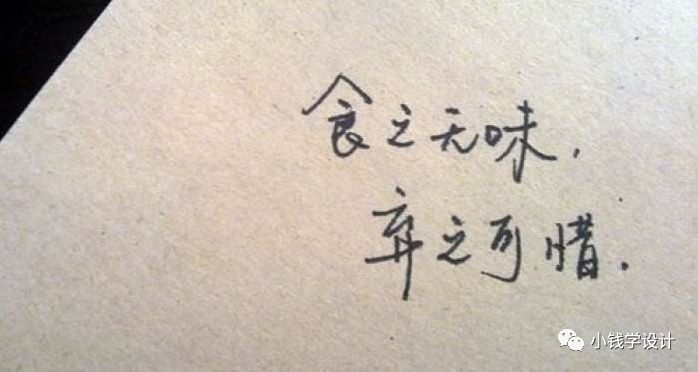 食之无味，
弃之可惜．
小钱学设计